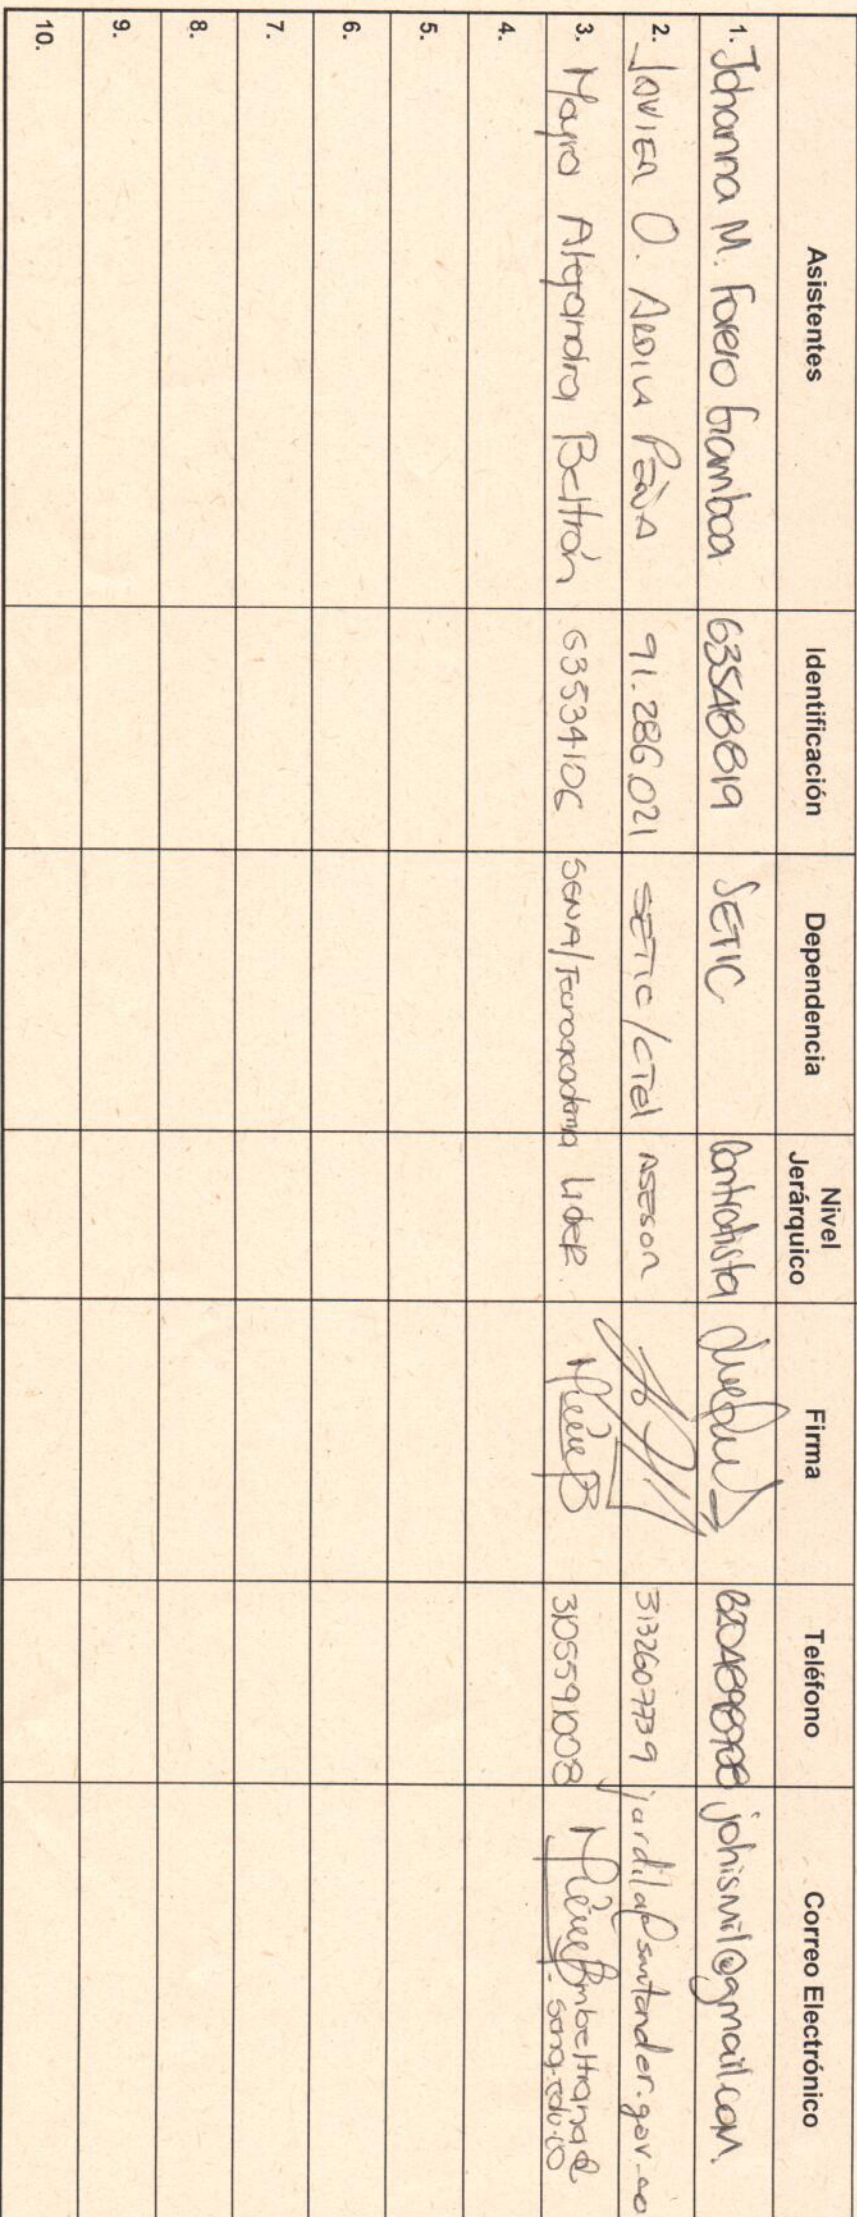 Asistentes Identificación Dependencia Nivel Jerárquico Firma Teléfono Correo Electrónico
1. Johanna M. Forero Gamboa 63548819 SETIC Contratista johismil@gmail.com.
2. JAVIER O. ARDILA PEÑA 91.286.021 SETIC/CTeI ASESOR 3132607739 jardila@santander.gov.co
3. Mayra Alejandra Beltrán 63534106 SENA/Tecnoacademia Lider. 3105591008 mbeltrana@sena.edu.co
4.
5.
6.
7.
8.
9.
10.